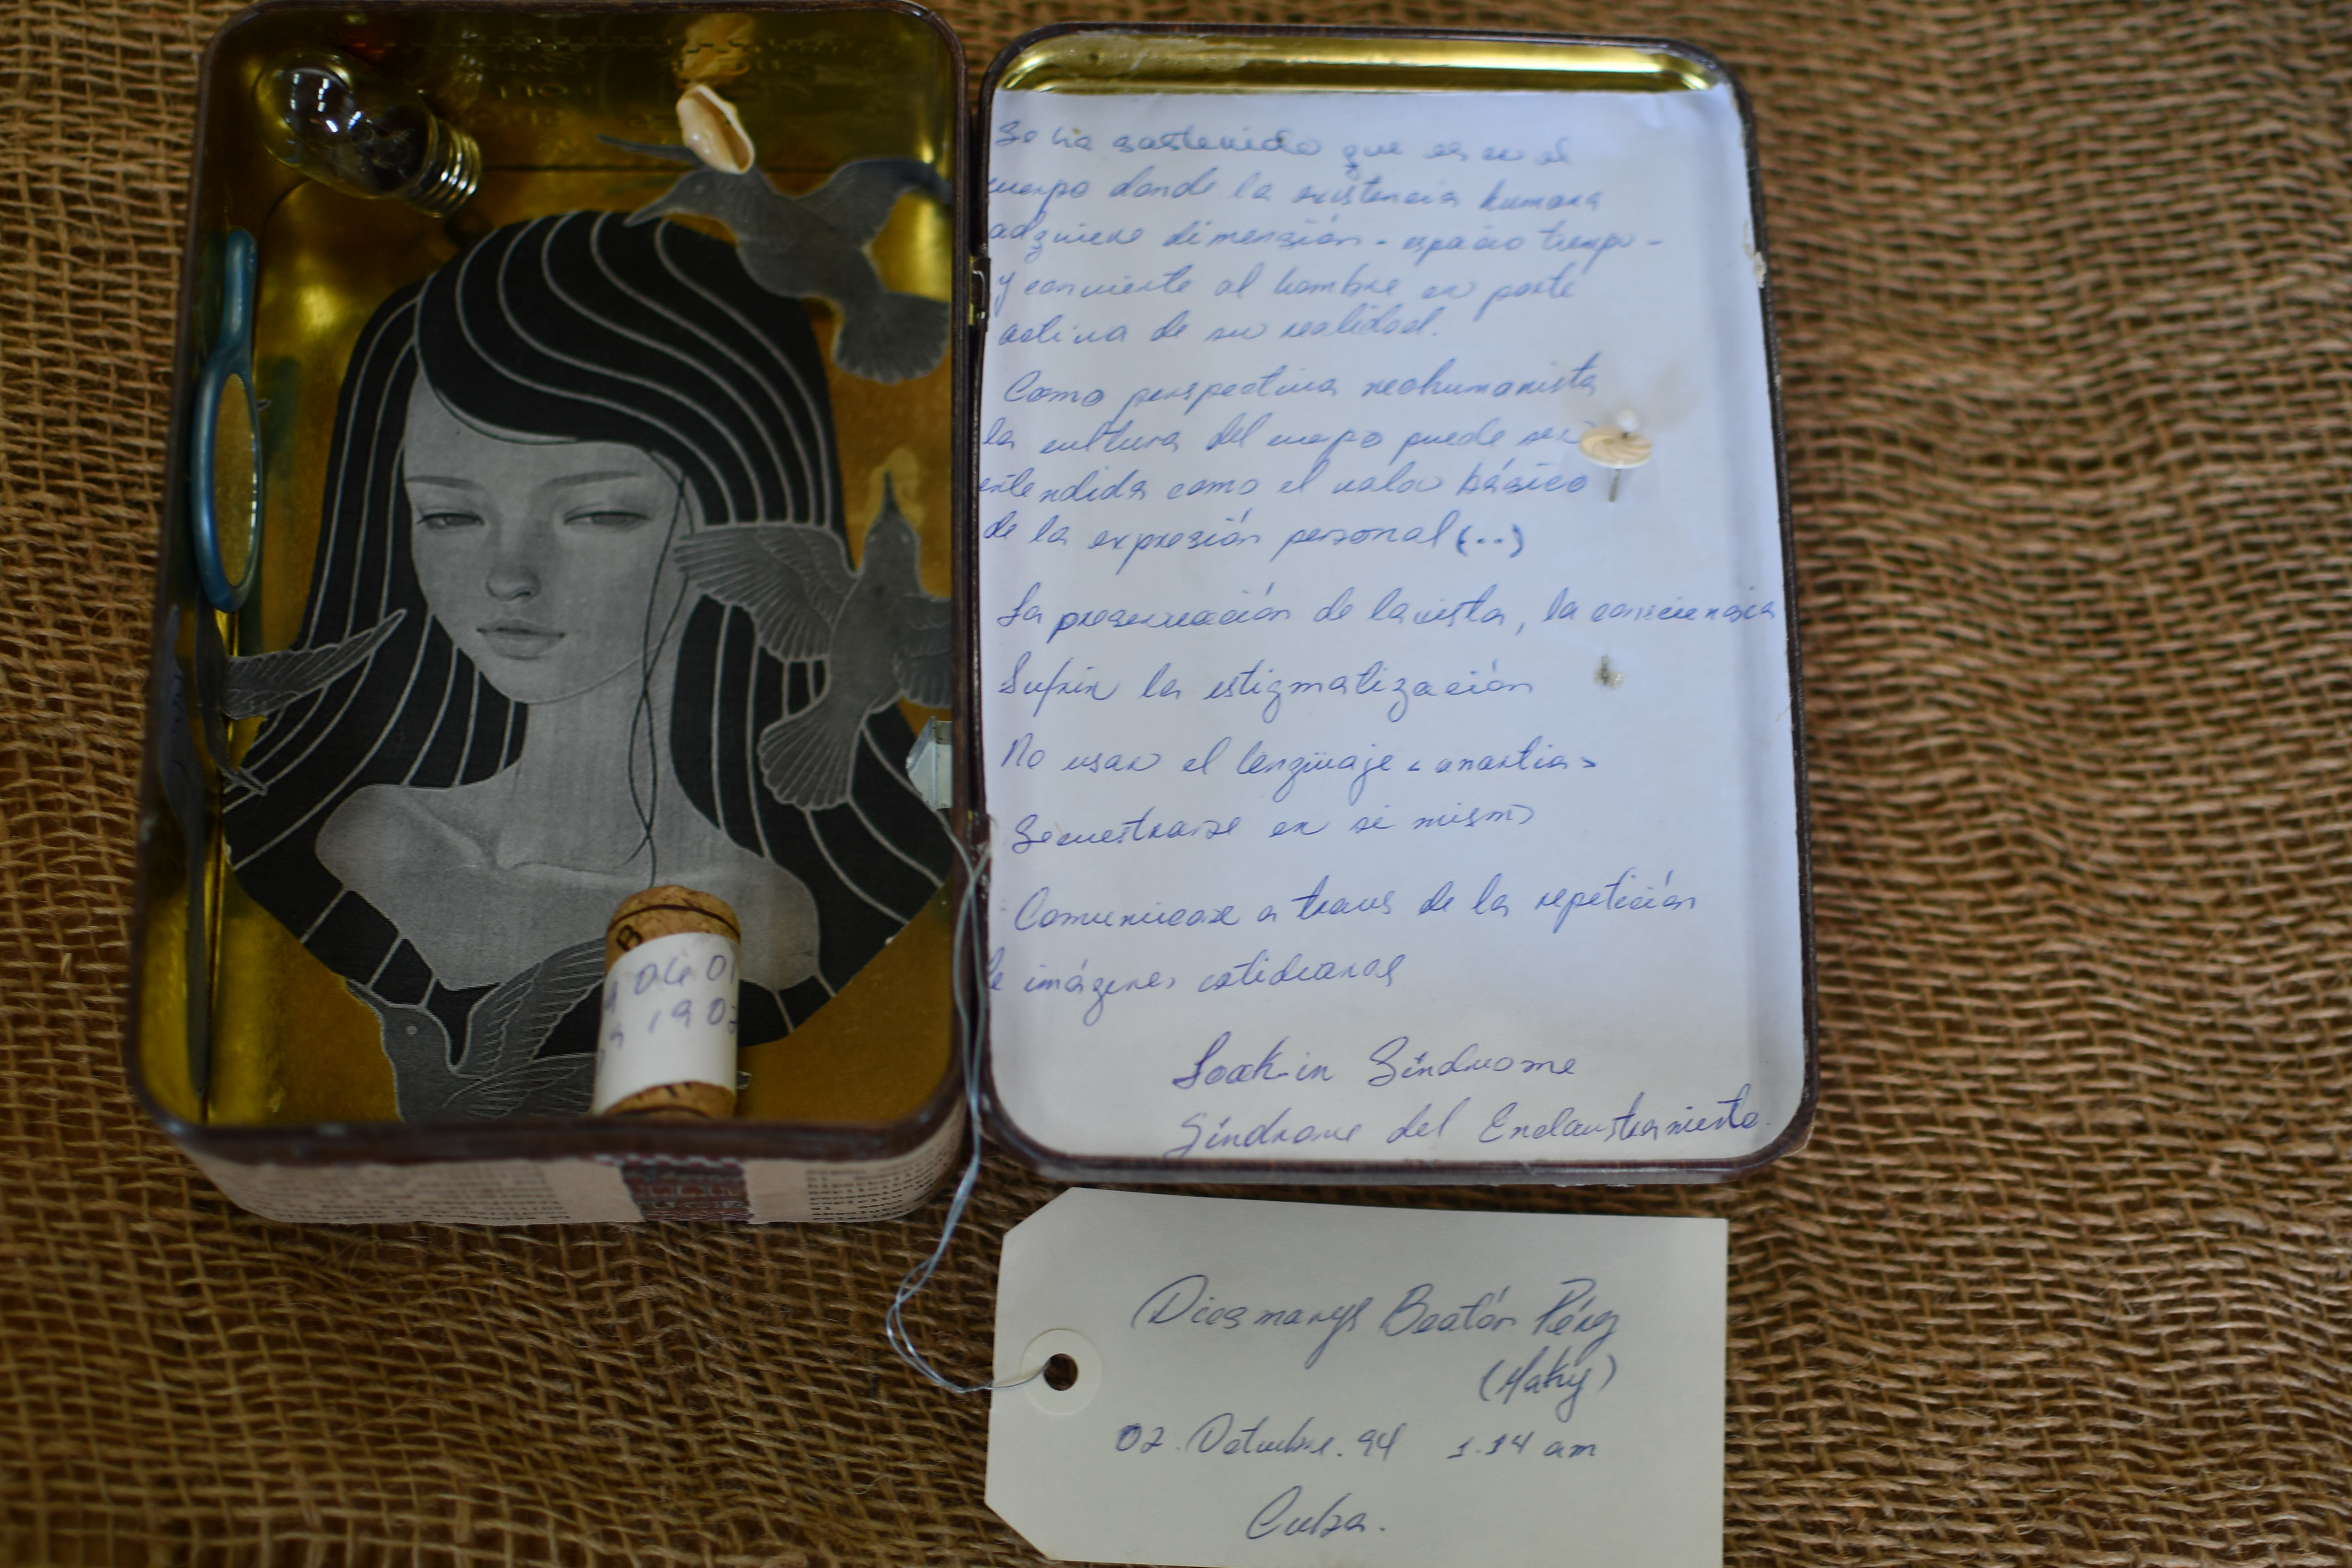 Se ha sostenido que es en el
cuerpo donde la existencia humana
adquiere dimensión - espacio tiempo -
y convierte al hombre en parte
activa de su realidad.
Como perspectiva neohumanista
la cultura del cuerpo puede ser
entendida como el valor básico
de la expresión personal (..)
La preservación de la vista, la consciencia
Sufrir la estigmatización
No usar el lenguaje <anartia>
Secuestrarse en si mismo
Comunicarse a traves de la repetición
de imágenes cotidianas
Look-in Síndrome
Síndrome del Enclaustramiento.
B
04 01
190
Diosmarys Beatón Pérez
(Maky)
02. Octubre. 94 1.14 am
Cuba.